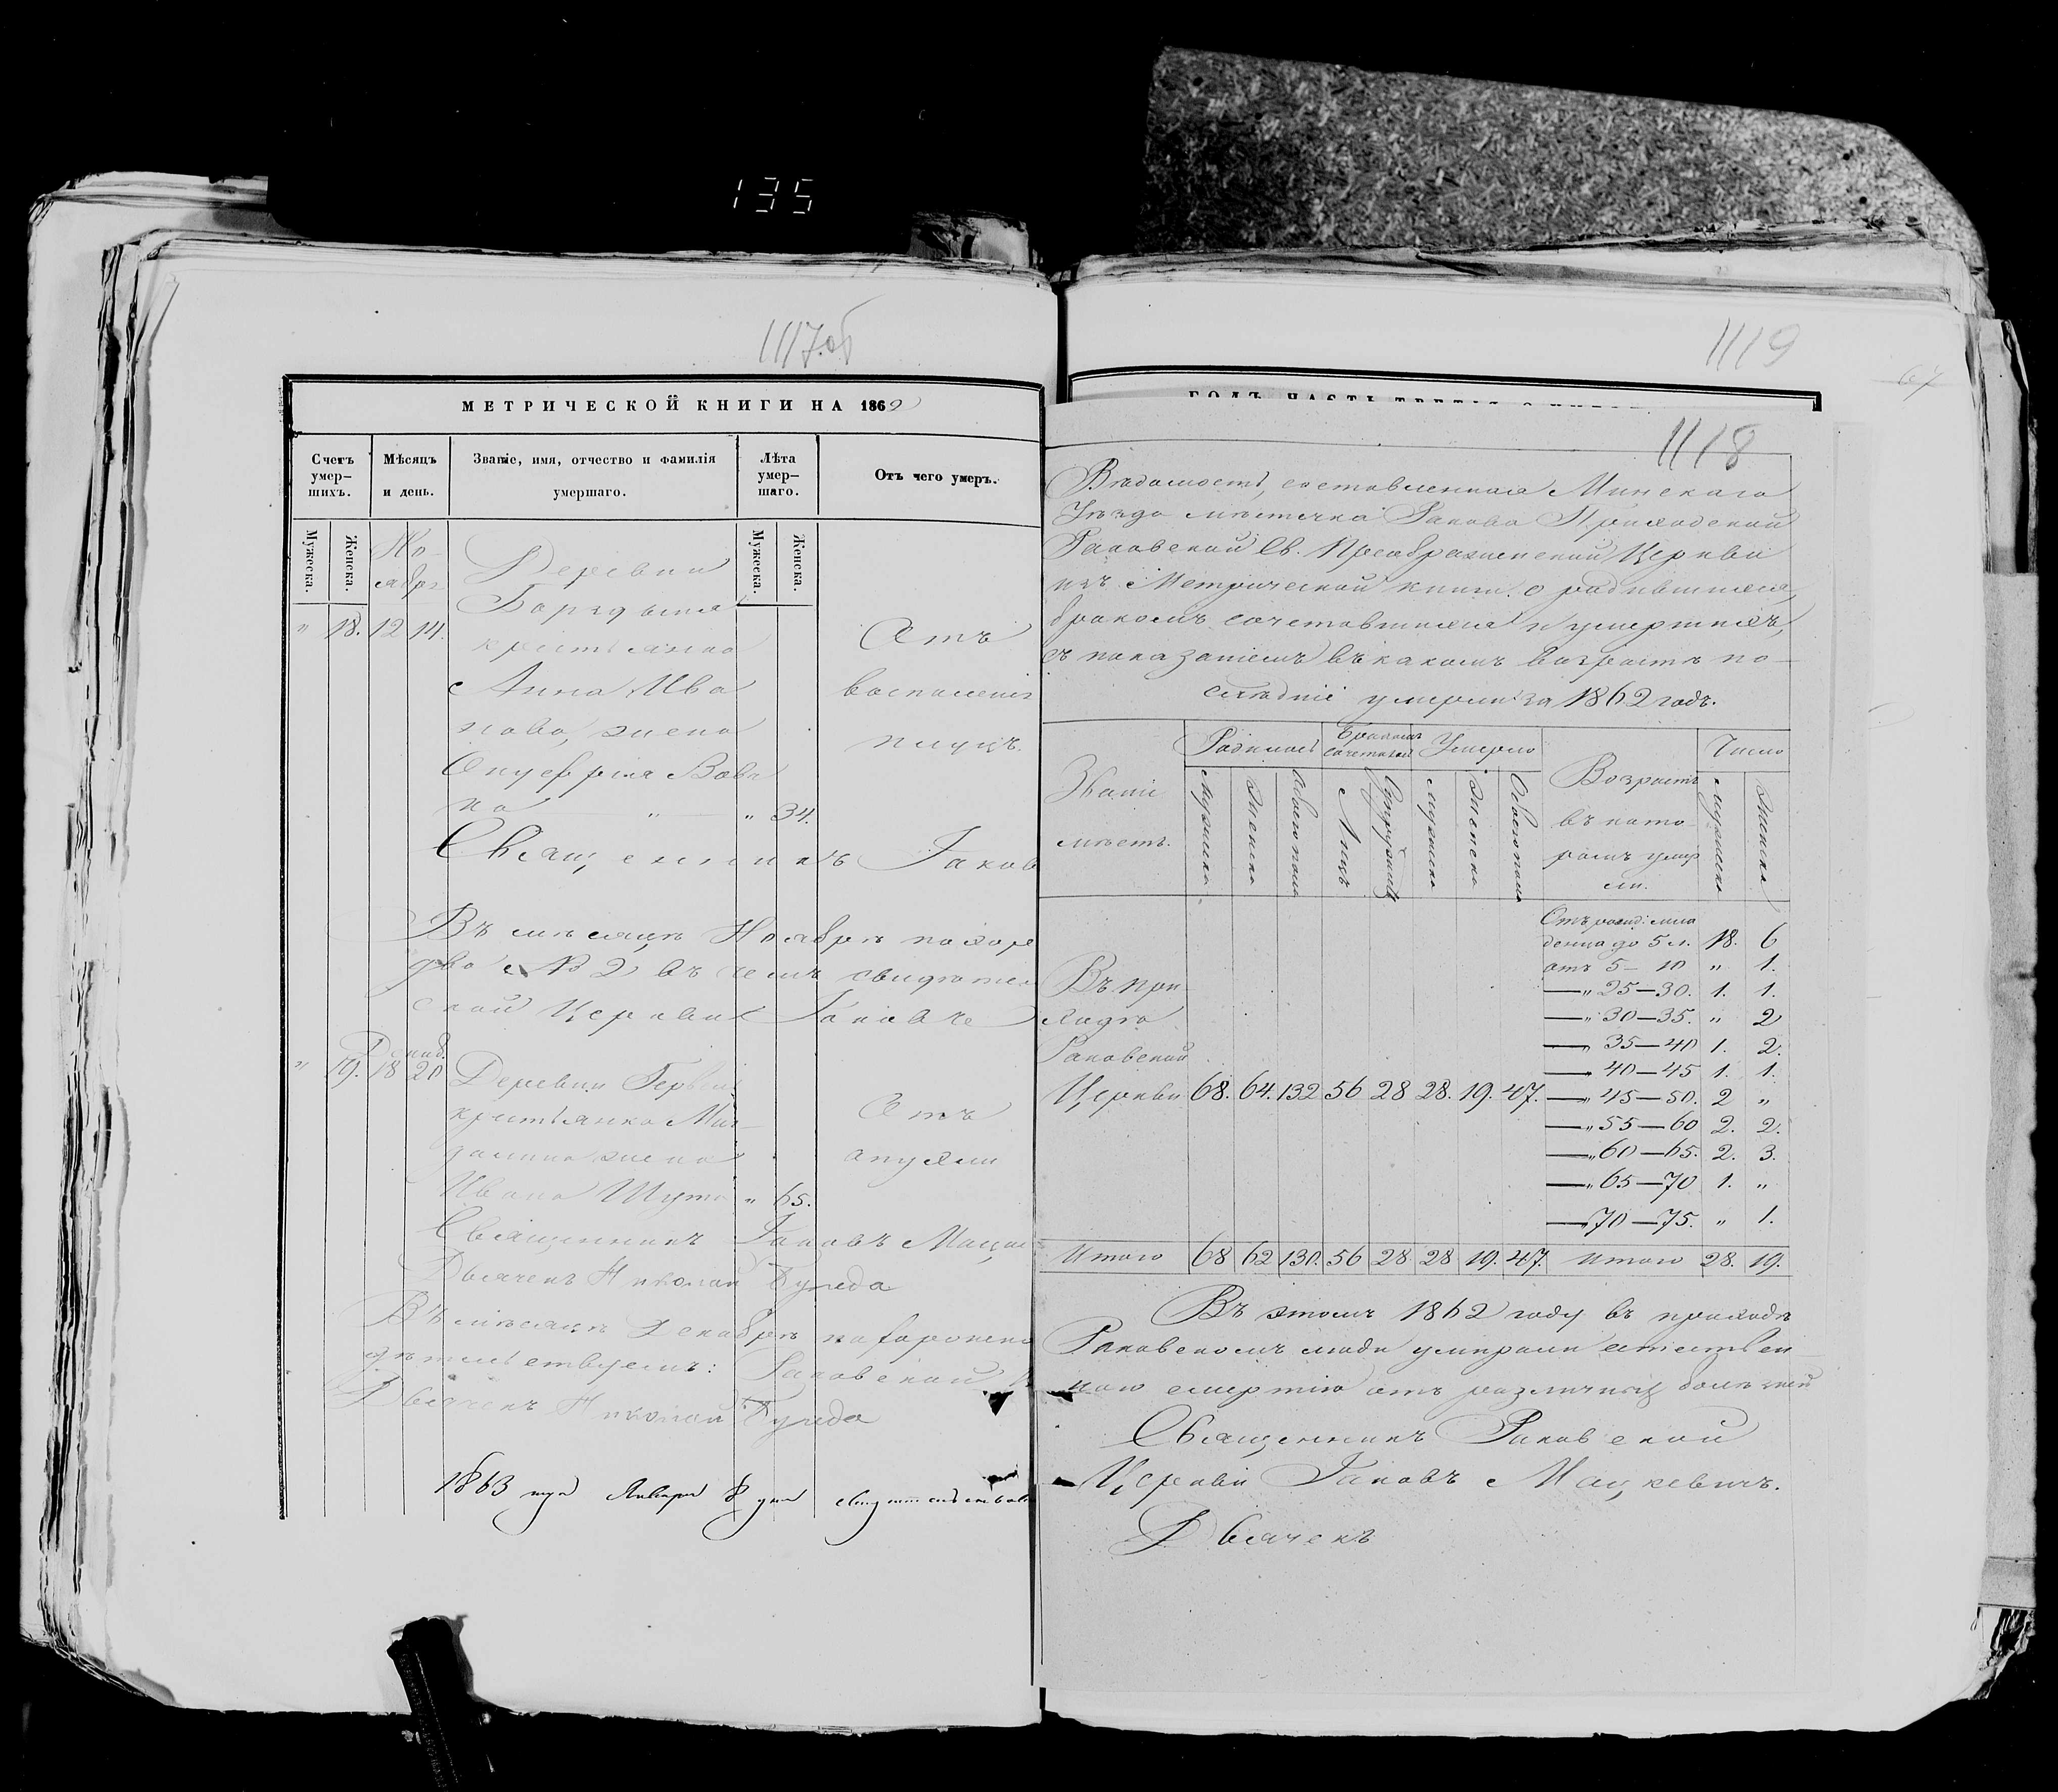 135
1117.об
МЕТРИЧЕСКОЙ КНИГИ НА 1862
Счетъ умер-шихъ.
Мѣсяцъ и день.
Званіе, имя, отчество и фамилія умершаго.
Лѣта умер-шаго.
Отъ чего умеръ.
Мужеска.
Женска.
Мужеска.
Женска.
Но-
ября
Деревни
„ 18. 12 14.
крестьянка
Отъ
Анна Ива
воспаленія
нова, жена
Онуфрія
на — „ — „ 34.
Священникъ Іаков
Въ мѣсяцѣ Ноябрѣ
№ 2 въ чемъ свидѣтел
ской Церкви Іаковъ
Декаб.
„ 19. 18 20
Деревни
крестьянка Маг-
Отъ
далина жена
опухли
Ивана Шута „ 65.
Священникъ Іаковъ Мацк
Дьячекъ Николай
Въ мѣсяцѣ Декабрѣ похоронено
дѣтельствуемъ: Раковской
Дьячекъ Николай
1863 года Января 8 дня свидѣтельствов
1119
67
1118
Вѣдомость, составленная Минскаго
Уѣзда мѣстечка Ракова Приходской
Раковской Св. Преображенской Церкви
изъ Метрической книги о родившихся,
бракомъ сочетавшихся и умершихъ,
съ показаніемъ въ какомъ возрастѣ по-
слѣдніе умерли за 1862 годъ.
Званіе мѣстъ.
Родилось
Бракомъ сочеталось
Умерло
Возрастъ въ кото-ромъ умер ли.
Число
Мужеска
Женска
Обоего пола
Лицъ
Супружествъ
Мужеска
Женска
Обоего пола
Мужеска
Женска
Отъ рожд: мла
денца до 5 л. 18. 6
отъ 5 — 10 „ 1.
Въ при-
—„ 25—30. 1. 1.
ходѣ
—„ 30—35. „ 2
Раковской
—„ 35—40 1. 2.
—„ 40—45 1. 1.
Церкви 68. 64. 132 56 28 28. 19. 47. —„ 45—50. 2 „
—„ 55—60 2. 2.
—„ 60—65. 2. 3.
—„ 65—70 1. „
—„ 70—75. „ 1.
Итого 68 62 130. 56 28 28 19. 47. Итого 28. 19.
Въ этомъ 1862 году въ приходѣ
Раковскомъ люди умирали естествен-
ною смертію отъ различныхъ болѣзней
Священникъ Раковской
Церкви Іаковъ Мацкевичъ.
Дьячекъ